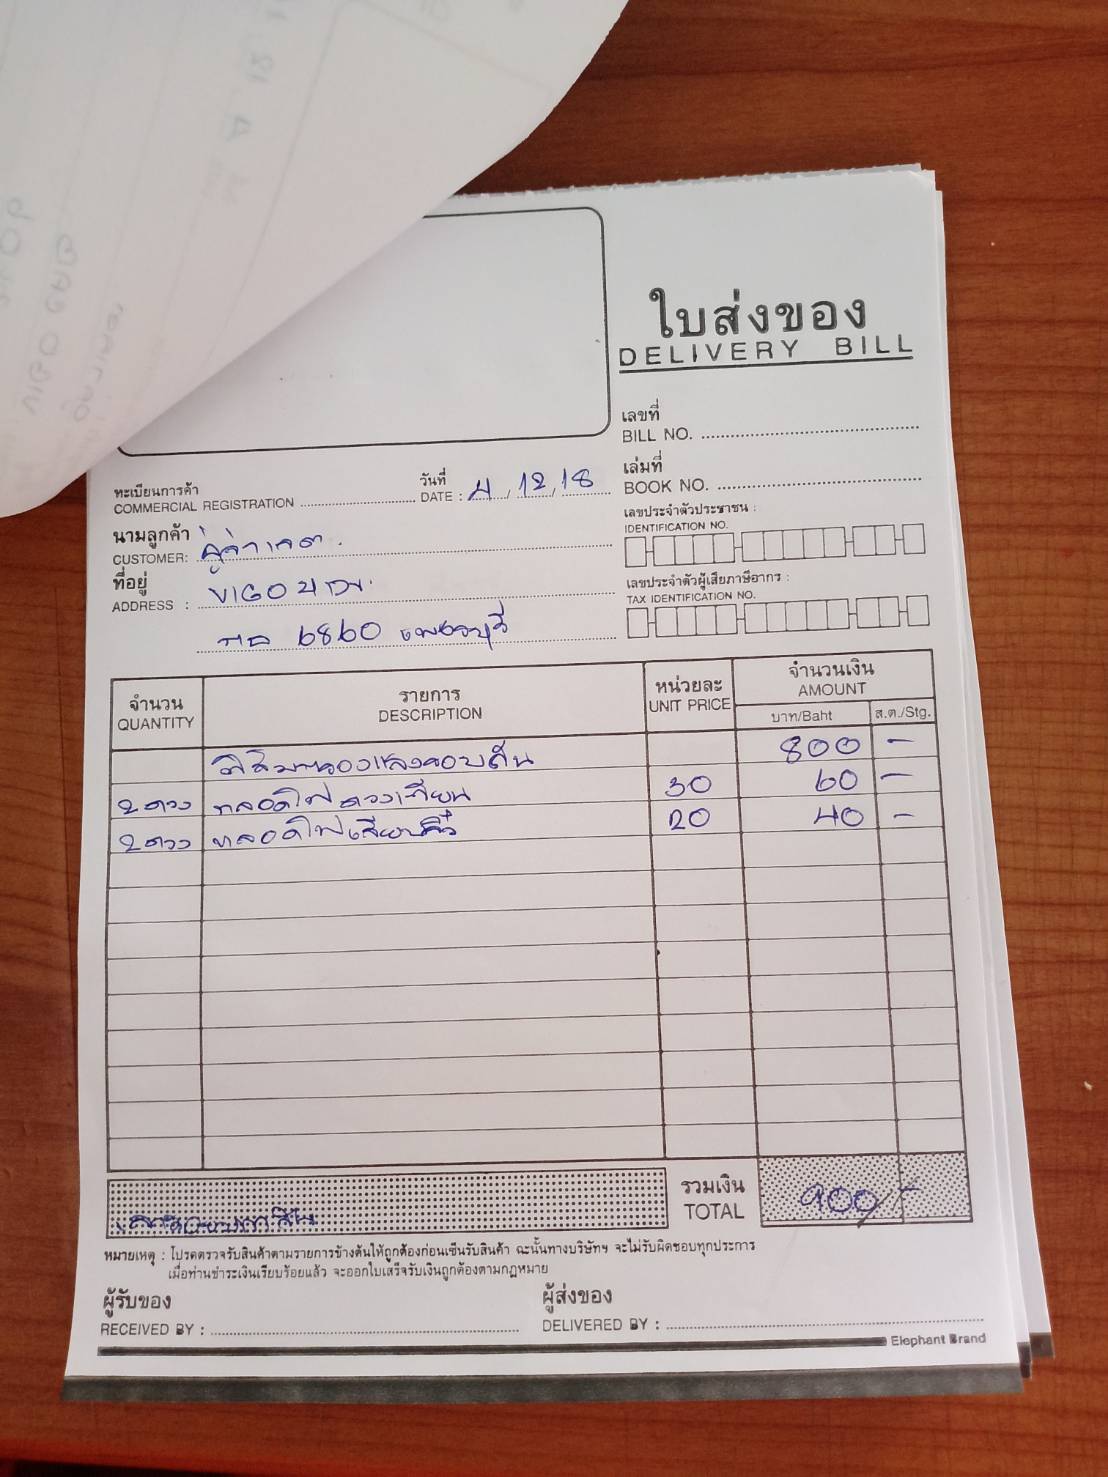 ใบส่งของ
DELIVERY BILL
เลขที่
BILL NO.
ทะเบียนการค้า
COMMERCIAL REGISTRATION
วันที่
DATE : 4, 12, 18
เล่มที่
BOOK NO.
นามลูกค้า
CUSTOMER:
เลขประจำตัวประชาชน :
IDENTIFICATION NO.
ที่อยู่
ADDRESS : VIGO
เลขประจำตัวผู้เสียภาษีอากร :
TAX IDENTIFICATION NO.
6860 เพชรบุรี
จำนวน
QUANTITY
รายการ
DESCRIPTION
หน่วยละ
UNIT PRICE
จำนวนเงิน
AMOUNT
บาท/Baht
ส.ต./Stg.
800 -
2 ดวง หลอดไฟ 30 60 -
2 ดวง หลอดไฟเสียบ 20 40 -
รวมเงิน
TOTAL
900/-
หมายเหตุ : โปรดตรวจรับสินค้าตามรายการข้างต้นให้ถูกต้องก่อนเซ็นรับสินค้า ฉะนั้นทางบริษัทฯ จะไม่รับผิดชอบทุกประการ
เมื่อท่านชำระเงินเรียบร้อยแล้ว จะออกใบเสร็จรับเงินถูกต้องตามกฎหมาย
ผู้รับของ
RECEIVED BY :
ผู้ส่งของ
DELIVERED BY :
Elephant Brand